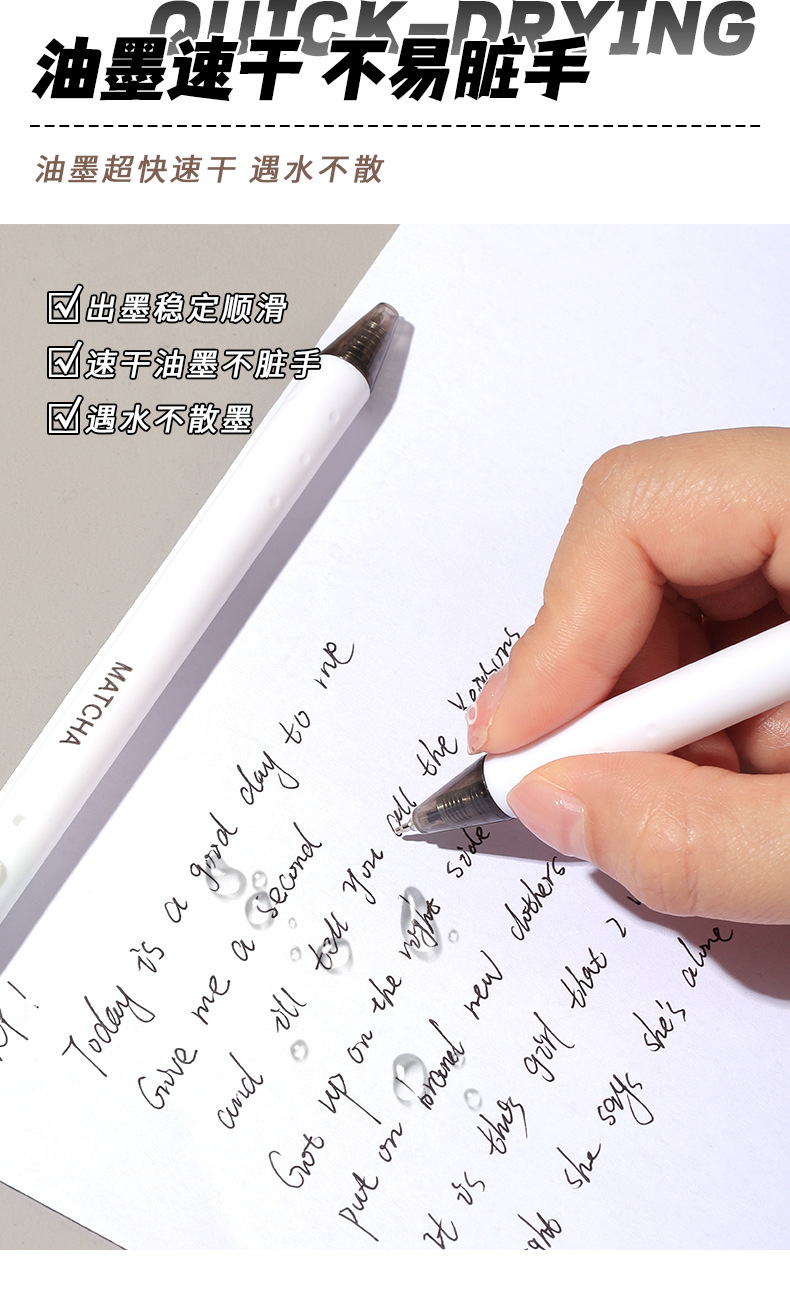 QUICK-DRYING
油墨速干 不易脏手
油墨超快速干 遇水不散
出墨稳定顺滑
速干油墨不脏手
遇水不散墨
MATCHA
Today is a good day to me
Give me a second
and ill tell you all the versions
Got up on the right side
put on brand new clothers
it is this girl that I
she says she's alone